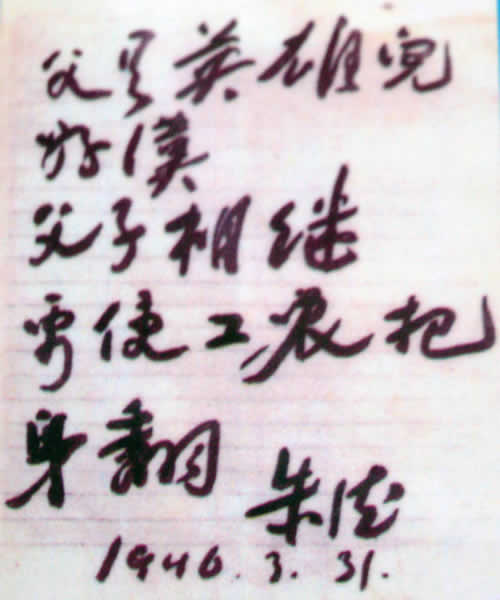 父是英雄兒
好漢
父子相继
要使工农把
身翻
朱德
1940.3.31.